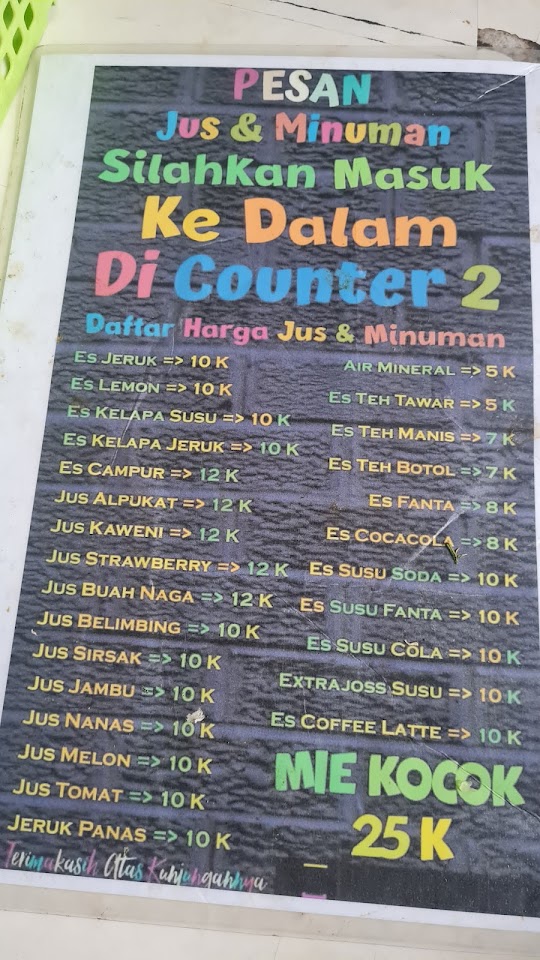 PESAN
Jus & Minuman
Silahkan Masuk
Ke Dalam
Di Counter 2
Daftar Harga Jus & Minuman
Es Jeruk => 10 K
Es Lemon => 10 K
Es Kelapa Susu => 10 K
Es Kelapa Jeruk => 10 K
Es Campur => 12 K
Jus Alpukat => 12 K
Jus Kaweni => 12 K
Jus Strawberry => 12 K
Jus Buah Naga => 12 K
Jus Belimbing => 10 K
Jus Sirsak => 10 K
Jus Jambu => 10 K
Jus Nanas => 10 K
Jus Melon => 10 K
Jus Tomat => 10 K
Jeruk Panas => 10 K
Air Mineral => 5 K
Es Teh Tawar => 5 K
Es Teh Manis => 7 K
Es Teh Botol => 7 K
Es Fanta => 8 K
Es Cocacola => 8 K
Es Susu Soda => 10 K
Es Susu Fanta => 10 K
Es Susu Cola => 10 K
Extrajoss Susu => 10 K
Es Coffee Latte => 10 K
MIE KOCOK
25 K
Terimakasih Atas Kunjungannya